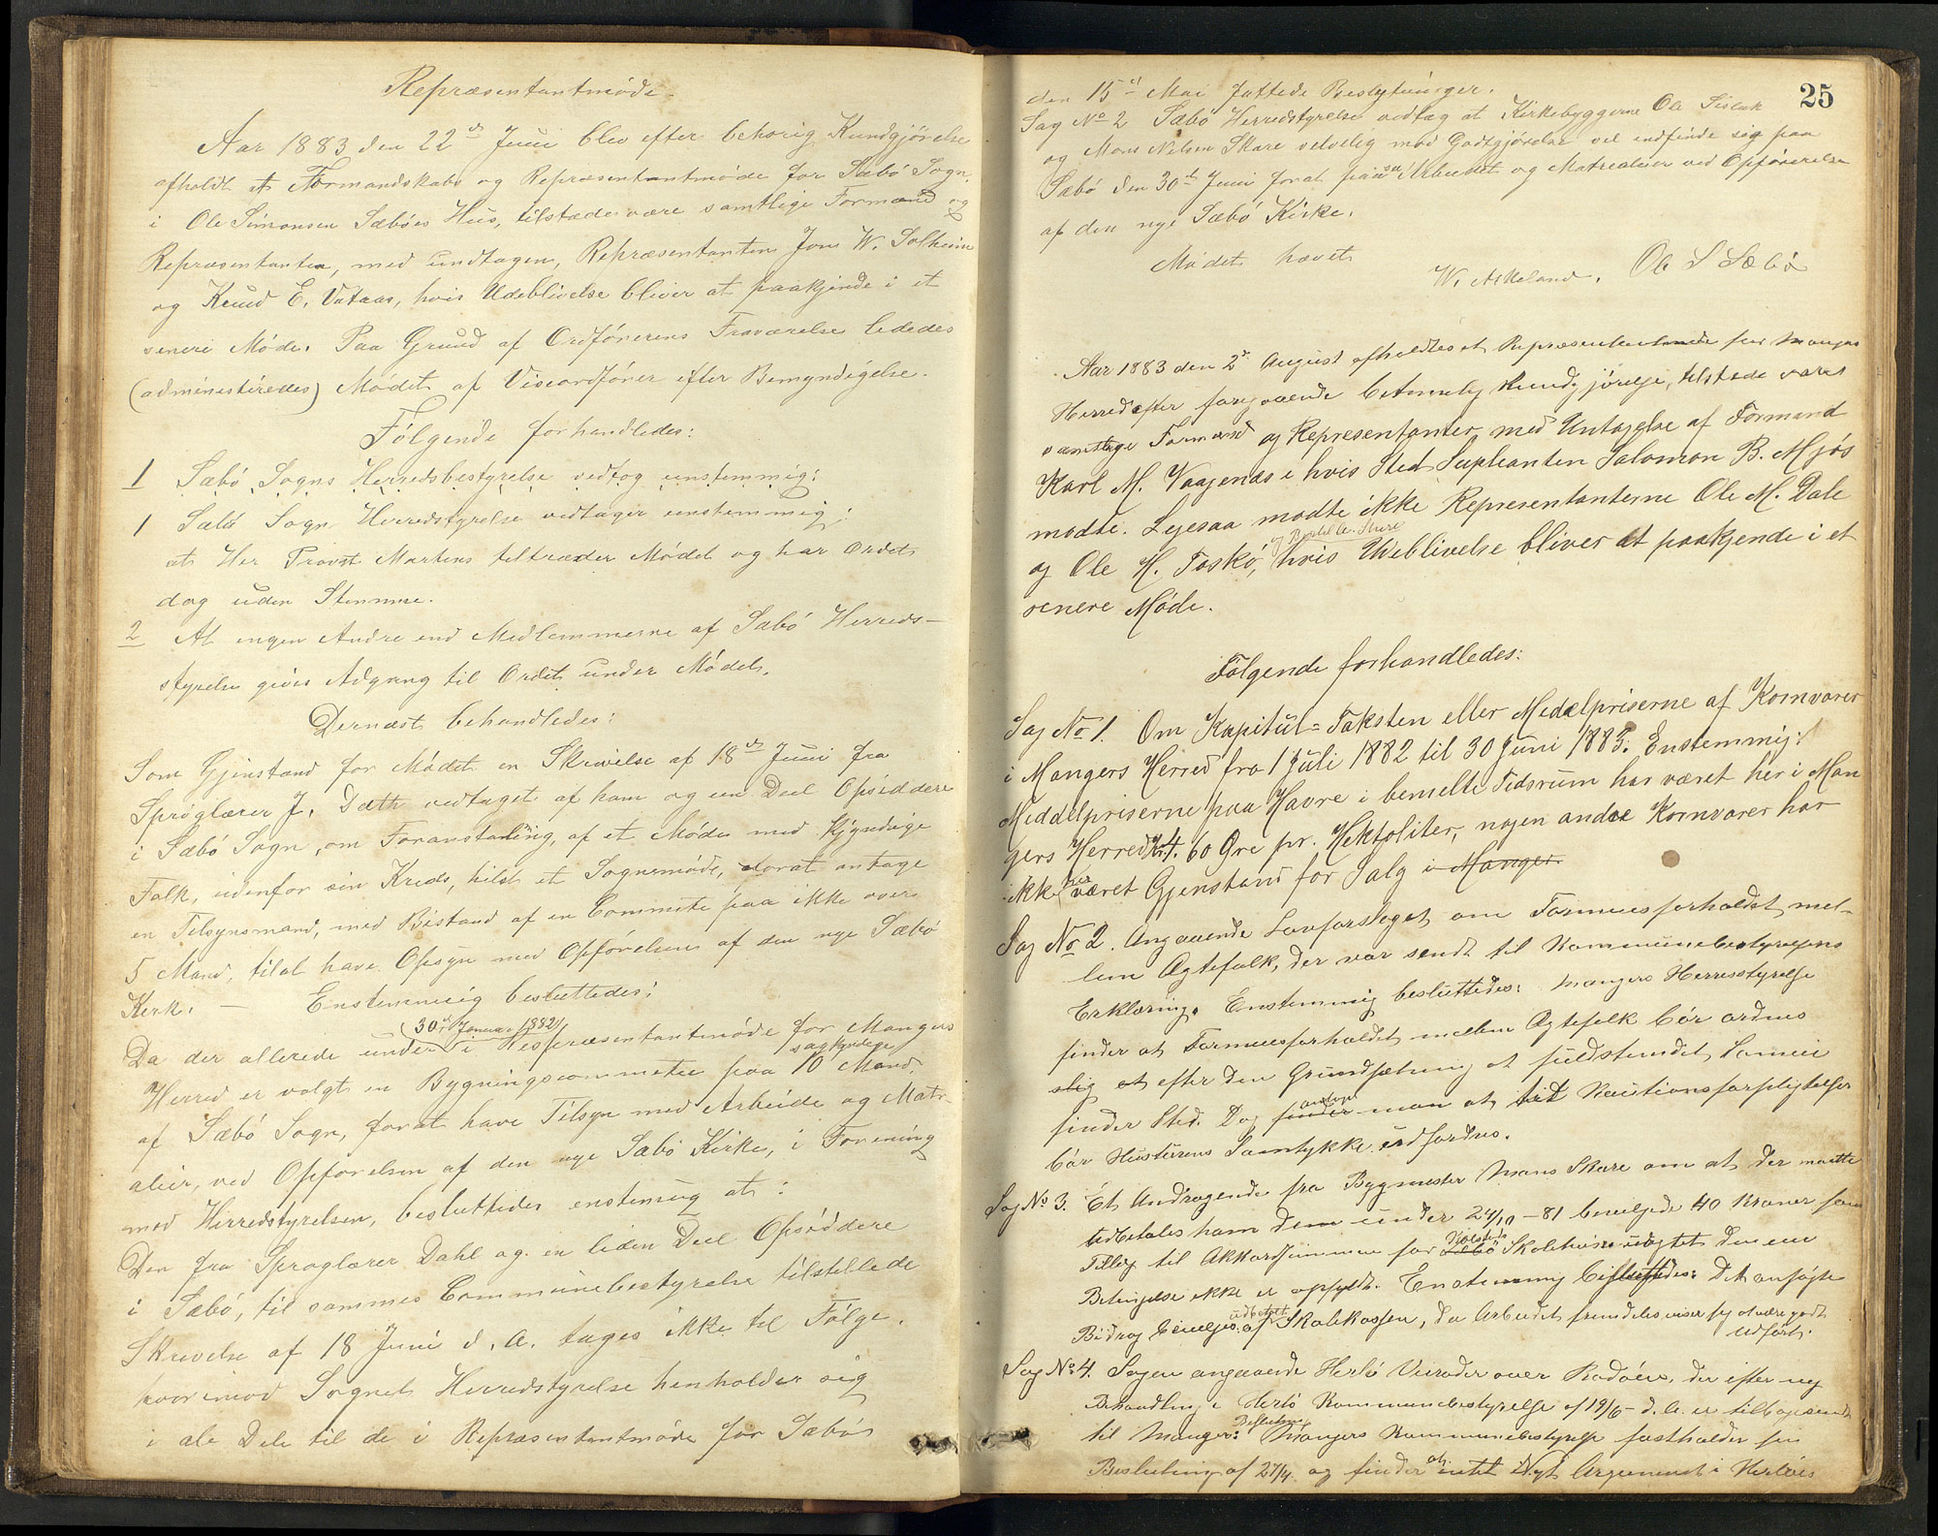 Repræsentantmøde.
Aar 1883 den 22de Juni blev efter behørig Kundgjørelse
afholdt et Formandskabs og Repræsentantmøde for Sæbö Sogn,
i Ole Simonsen Sæböes Hus, tilstede være samtlige Formænd og
Repræsentanter, med undtagen, Repræsentanten Jons W. Solheim
og Knud E. Vataas, hvis Udeblivelse bliver at paakjende i et
senere Möde. Paa Grund af Ordförerens Fraværelse lededes
(administiredes) Mödet af Viseordförer efter Bemyndigelse.
Fölgende forhandledes:
1 Sæbö Sogns Herredsbestyrelse vedtog enstemmig:
1 Sæbö Sogn Herredstyrelse vedtager enstemmig:
at Her Provst Martens tiltræder Mödet og har Ordet
dog uden Stemme.
2 At ingen Andre end Medlemmerne af Sæbö Herreds-
styrelse gives Adgang til Ordet under Mödet.
Dernæst behandledes:
Som Gjenstand for Mödet en Skrivelse af 18de Juni fra
Sproglærer J. Dæth vedtaget af ham og en Deel Opsiddere
i Sæbö Sogn, om Foranstalting, af et Möde med kyndige
Folk, udenfor sin Kreds, helst et Sognemöde, forat antage
en Tilsynsmand, med Bistand af en Committe paa ikke over
5 Mand, tilat have Opsyn med Opförelsen af den nye Sæbö
Kirk. — Enstemmig besluttedes:
(30te Januar 1882)
Da der allerede under i Respræsentantmöde for Mangers
sagkyndige
Herred er valgt en Bygningscommetee paa 10 Mand,
af Sæbö Sogn, forat have Tilsyn med Arbeide og Matr-
alier, ved Opförelsen af den nye Sæbö Kirke, i Forening
med Herredstyrelsen, besluttedes enstemig at:
Den fra Sproglærer Dahl og en liden Deel Opsiddere
i Sæbö, til sammes Communebestyrelse tilstillede
Skrivelse af 18 Juni d. A. tages ikke til Fölge.
hvorimod Sognets Herredstyrelse henholder sig
i ale Dele til de i Repræsentantmöde for Sæbös
25
den 15de Mai fattede Beslutninger.
Sag No 2 Sæbö Herredstyrelse vedtog at Kirkebyggerne Ole
og Mons Nielsen Skare velvelig mod Godtgjörelse vel indfinde sig paa
Sæbö den 30te Juni forat paase Arbeidet og Matrealier ved Opförelse
af den nye Sæbö Kirke.
Mödet hævet
W. Askeland. Ole S Sæbö
Aar 1883 den 2de August afholdtes et Repræsentantmöde for Mangers
Herred efter foregaaende betimelig Kundgjörelse, tilstede vares
samtlige Formænd og Repræsentanter med Untagelse af Formand
Karl M. Vaagenæs i hvis Sted Supleanten Salomon B. Mjös
mødte. Legesaa mødte ikke Representanterne Ole M. Dale
og Bertel A. Skare
og Ole H. Toskö, hvis Udeblivelse bliver at paakjende i et
senere Möde.
Følgende forhandledes:
Sag No 1. Om Kapitul-Taksten eller Medelpriserne af Kornvarer
i Mangers Herred fra 1 Juli 1882 til 30 Juni 1883. Enstemmig:
Middelpriserne paa Havre i bemelte Tidsrum har været her i Man
gers Herred Kr 4. 60 Øre pr. Hektoliter, nogen andre Kornvarer har
her
ikke været Gjenstand for Salg i Manger.
Sag No 2. Angaaende Lovforslaget om Formuesforholdet mel-
lem Ægtefolk, der var sendt til Kommunebestyrelsens
Erklæring. Enstemmig besluttedes: Mangers Herredsstyrelse
finder at Formuesforholdet mellem Ægtefolk bör ordnes
slig at efter den Grundsætning at fuldstændet Sameie
anser
finder Sted. Dog finder man at til Kautionsforpligtelser
bör Hustruens Samtykke udfordres.
Sag No 3. Et Andragende fra Bygmester Mons Skare om at der maatte
udbetales ham dem under 24/10-81 bevilgede 40 Kroner som
Tillæg til Akkordsummen for Sæbö Skolehus uagtet den ene
Betingelse ikke er opfyldt. Enstemmig besluttedes: Det ansögte
udbetalt
Bidrag bevilges af Skolekassen, da Arbeidet fremdeles viser sig at være godt
udfört.
Sag No 4. Sagen angaaende Herlö Veiroder over Radöen, der efter ny
Behandling i Herlö Kommunebestyrelse af 19/6 d. A. er tilbagesendt
Besluttedes
til Manger: Mangers Kommunebestyrelse fastholder sin
at
Beslutning af 27/4 og finder intet Nyt Argument i Herlöes